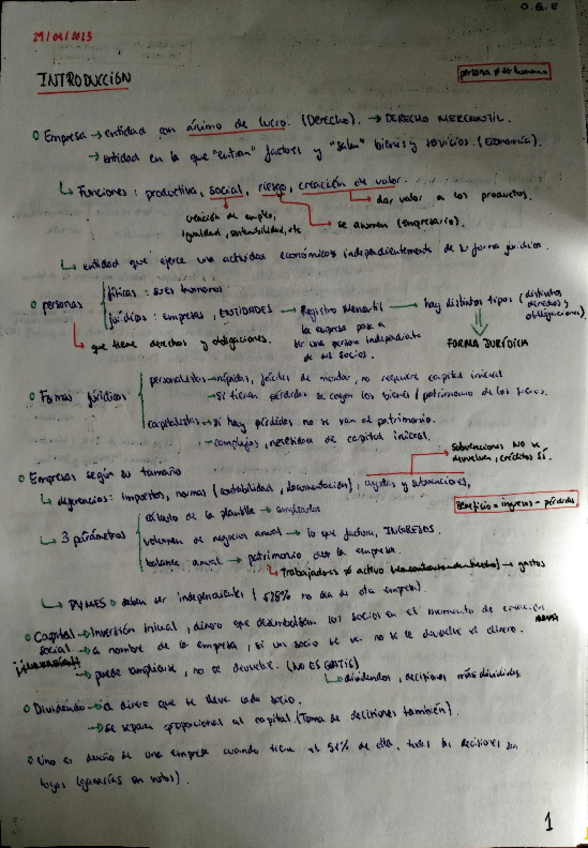 O.G.E
29/01/2023
INTRODUCCIÓN
persona ≠ ser humano
Empresa → entidad con ánimo de lucro. (Derecho). → DERECHO MERCANTIL.
→ entidad en la que "entran" factores y "salen" bienes y servicios. (Economía).
Funciones: productiva, social, riesgo, creación de valor.
dar valor a los productos.
creación de empleo,
igualdad, sostenibilidad, etc
se asumen (empresario).
entidad que ejerce una actividad económica independientemente de su forma jurídica.
personas
físicas: seres humanos
jurídicas: empresas, ENTIDADES → Registro Mercantil → hay distintos tipos (distintos
derechos y
obligaciones).
la empresa pasa a
ser una persona independiente
de sus socios.
que tiene derechos y obligaciones.
FORMA JURÍDICA
Formas jurídicas
personalistas → rápidas, fáciles de montar, no requiere capital inicial
→ si tienen pérdidas se cogen los bienes / patrimonio de los socios.
capitalistas → si hay pérdidas no se van al patrimonio.
→ complejas, necesidad de capital inicial.
Subvenciones NO se
devuelven, créditos SÍ.
Empresas según su tamaño
diferencias: impuestos, normas (contabilidad, documentación), ayudas y subvenciones,
Beneficio = ingresos - pérdidas
3 parámetros
de la plantilla → empleados
volumen de negocios anual → lo que factura, INGRESOS.
balance anual → patrimonio de la empresa.
Trabajadores ≠ activo → gastos
PYMES deben ser independientes (25% no sea de otra empresa).
Capital → Inversión inicial, dinero que desembolsan los socios en el momento de
social → a nombre de la empresa, si un socio se va no se le devuelve el dinero.
→ puede ampliarse, no se devuelve. (NO ES GRATIS)
dividendos, decisiones más divididas
Dividendo → dinero que se lleva cada socio.
→ se reparte proporcional al capital. (Toma de decisiones también).
Uno es dueño de una empresa cuando tiene el 51% de ella, todas las decisiones son
tuyas (ganarías en votos).
1